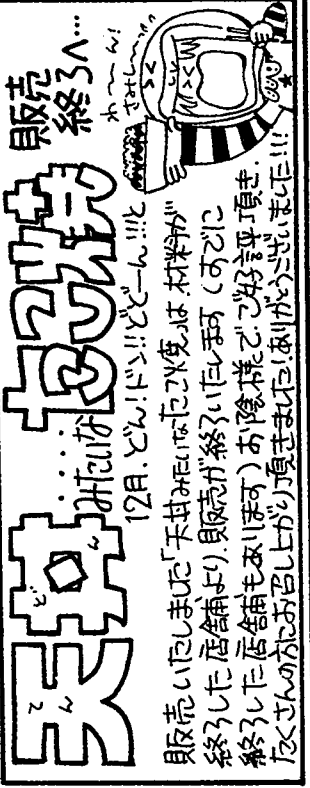 天丼
てん
どん
・・・・・みたいな
たこ焼き
販売
終了へ…
わーーん!
さみしーー
12月、どん!ドン!!どどーん!!!と
販売いたしました「天丼みたいなたこ焼」は、材料が
終了した店舗より、販売が終了いたします(すでに
終了した店舗もあります)お陰様で、ご好評頂き、
たくさんの方にお召し上がり頂きました!ありがとうございました!!!